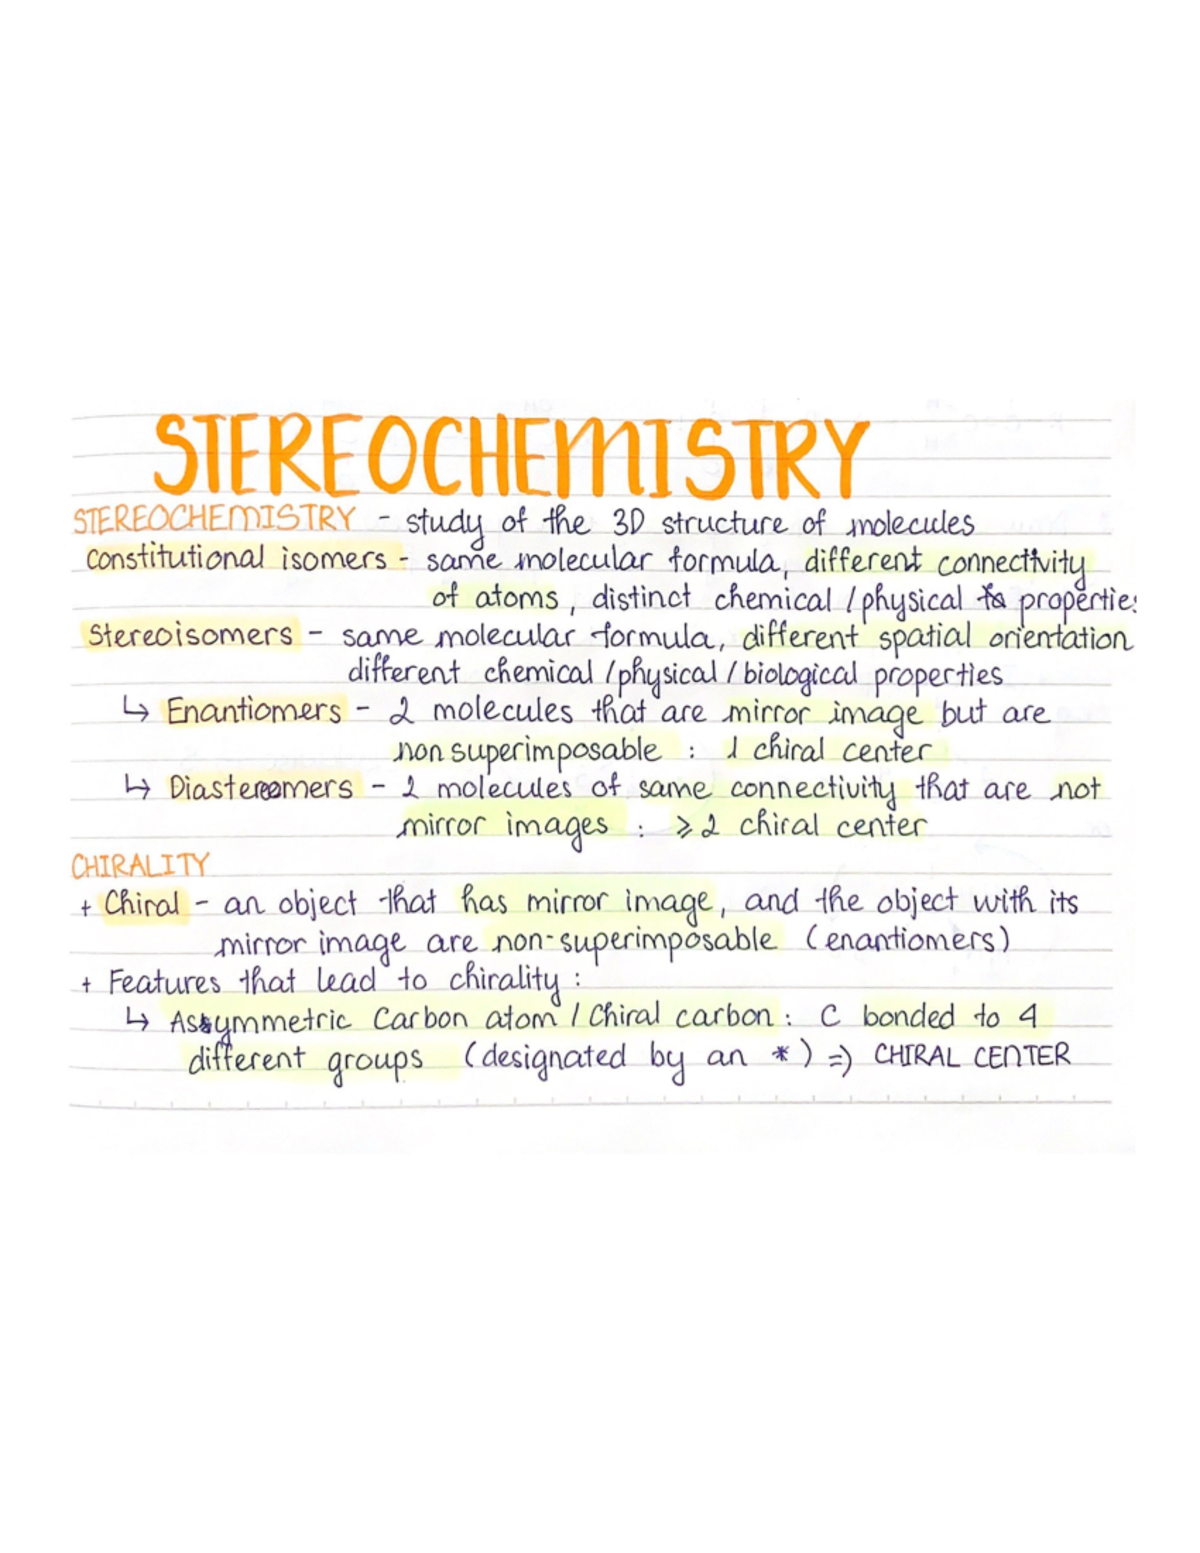 STEREOCHEMISTRY
STEREOCHEMISTRY - study of the 3D structure of molecules
Constitutional isomers - same molecular formula, different connectivity
of atoms, distinct chemical / physical properties
Stereoisomers - same molecular formula, different spatial orientation
different chemical / physical / biological properties
↳ Enantiomers - 2 molecules that are mirror image but are
non superimposable : 1 chiral center
↳ Diastereomers - 2 molecules of same connectivity that are not
mirror images : ≥ 2 chiral center
CHIRALITY
+ Chiral - an object that has mirror image, and the object with its
mirror image are non-superimposable (enantiomers)
+ Features that lead to chirality :
↳ Assymmetric Carbon atom / Chiral carbon : C bonded to 4
different groups (designated by an *) => CHIRAL CENTER